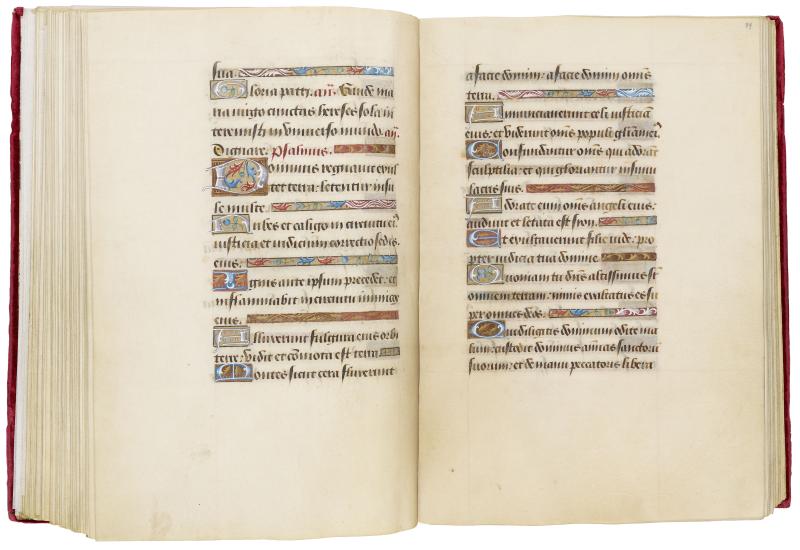 sua.
Gloria patri. añ. Gaude ma
ria virgo cunctas hereses sola in
teremisti in universo mundo. añ.
Dignare. Psalmus.
Dominus regnavit exul
tet terra: letentur insu
le multe.
Nubes et caligo in circuitu eiꝰ
iusticia et iudicium correctio sedis
eius.
Ignis ante ipsum precedet: et
inflammabit in circuitu inimicos
eius.
Alluxerunt fulgura eius orbi
terre: vidit et cōmota est terra
Montes sicut cera fluxerunt
a facie domini: a facie domini omīs
terra.
Annunciaverunt celi iusticiam
eius: et viderunt om̄s populi gl̄iam eiꝰ.
Confundantur om̄s qui adorāt
sculptilia: et qui gloriantur in simu
lacris suis.
Adorate eum om̄s angeli eius:
audivit et letata est sion.
Et exultaverunt filie iude: pro
pter iudicia tua domine.
Quoniam tu dn̄s altissimus
omnem terram: nimis exaltatus es su
per omnes deos.
Qui diligitis dominum odite ma
lum: custodit dominus animas sanctorū
suorum: et de manu peccatoris libera